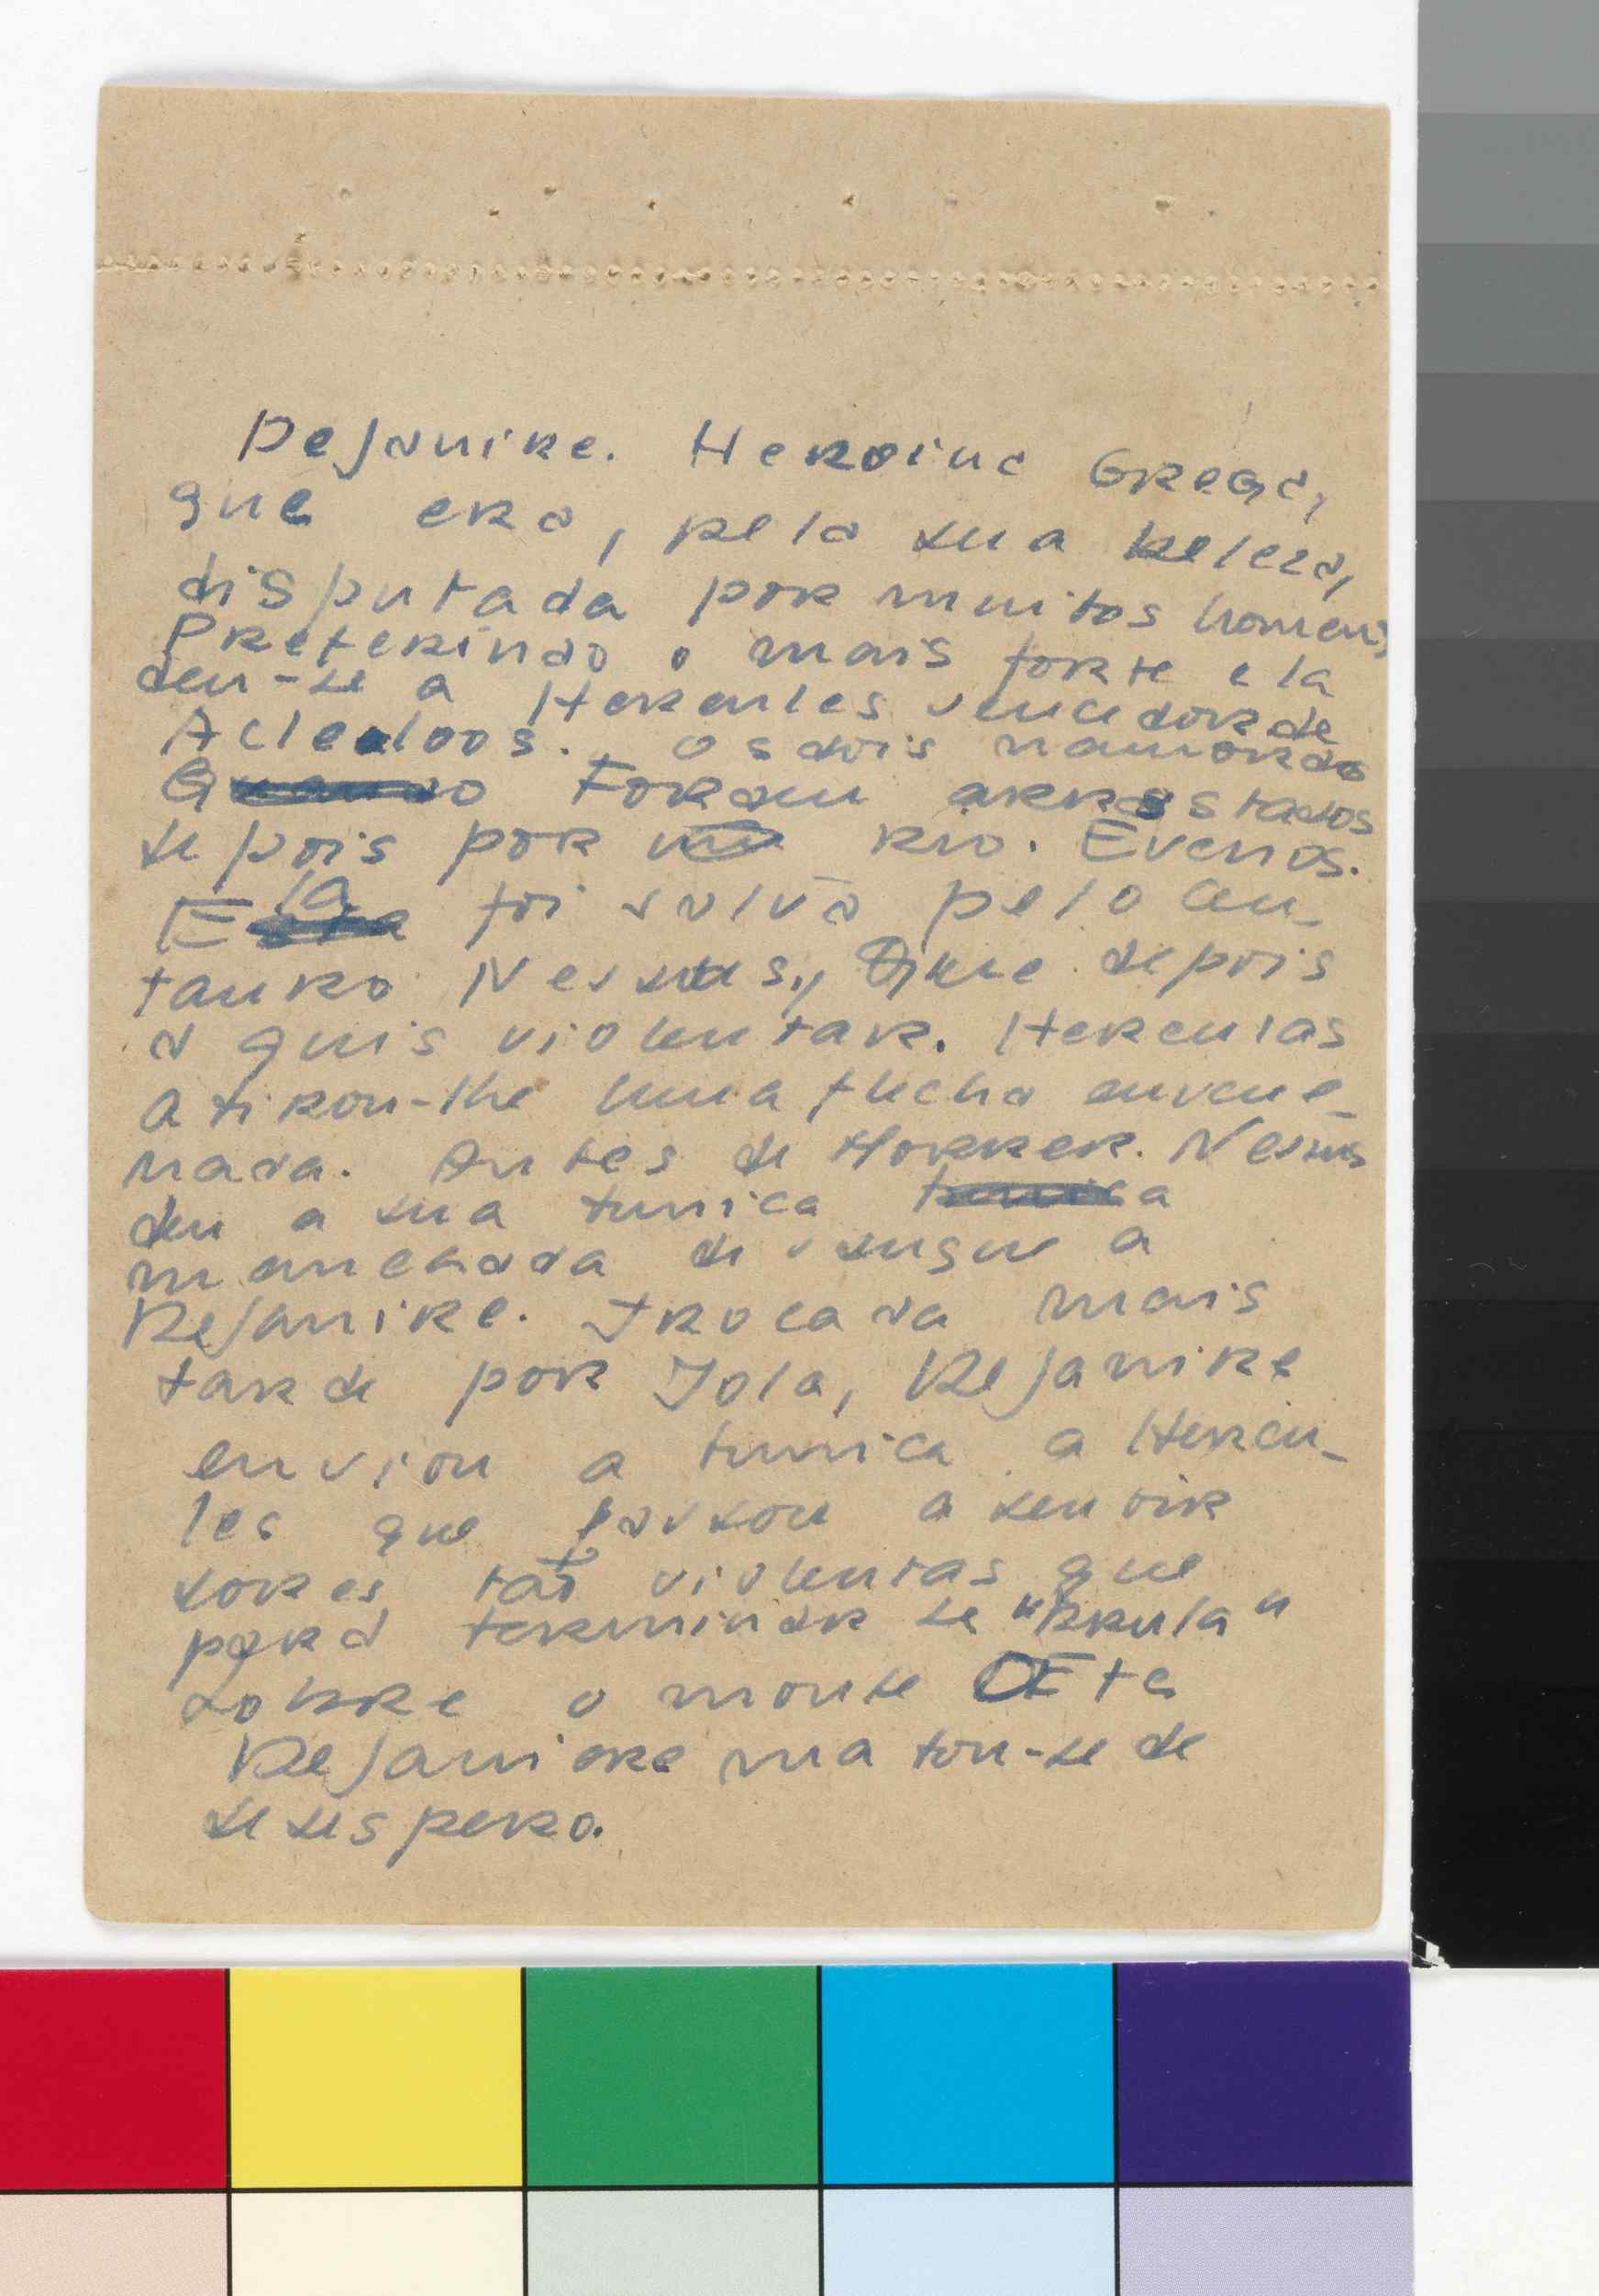 Dejanire. Heroina Grega,
que era, pela sua beleza,
disputada por muitos homens,
Preferindo o mais forte ela
deu-se a Hercules vencedor de
Acheloos. Os dois namorados
Quando Foram arrastados
depois por um rio. Evenos.
Ela foi salva pelo cen-
tauro Nessus, que depois
a quis violentar. Herculas
atirou-lhe huma flecha envene-
nada. Antes de Morrer. Nessus
deu a sua tunica tunica
manchada de sangue a
Dejanire. Trocada mais
tarde por Iola, Dejanire
enviou a tunica a Hercu-
les que passou a sentir
dores tão violentas que
para terminar se "brula"
sobre o monte OEta
Dejaniore matou-se de
desespero.